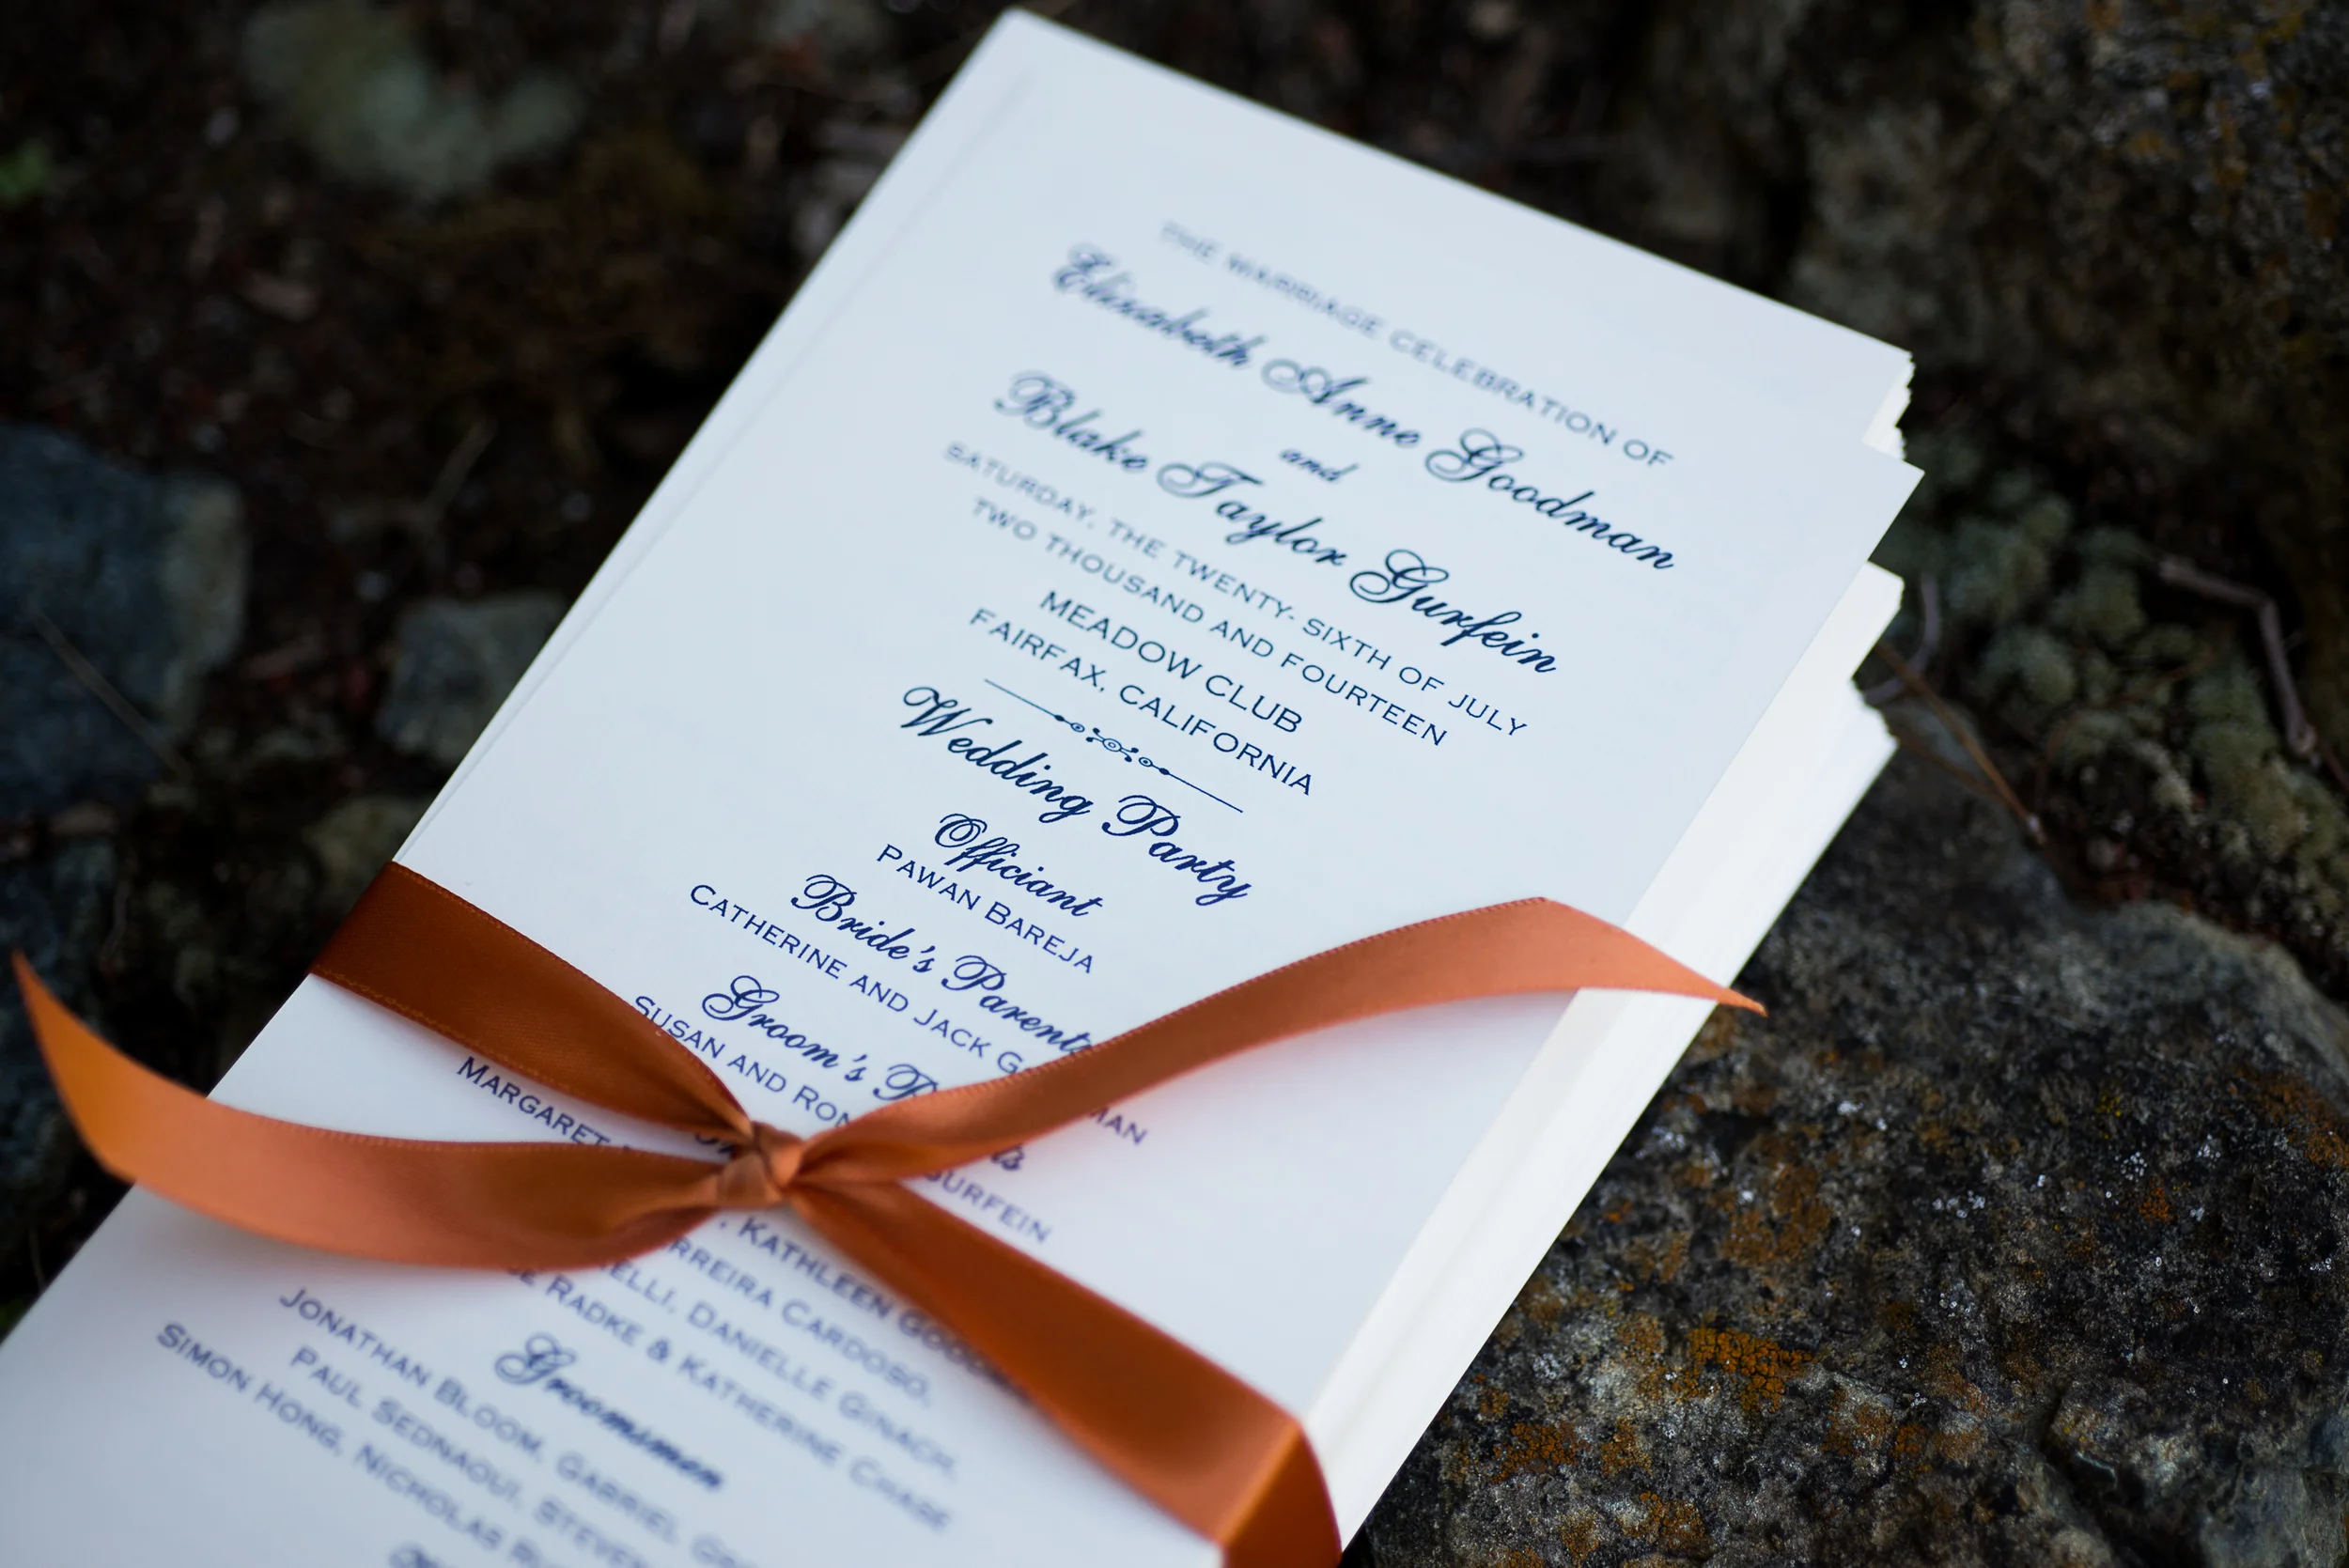 THE MARRIAGE CELEBRATION OF
Elizabeth Anne Goodman
and
Blake Taylor Gurfein
SATURDAY, THE TWENTY-SIXTH OF JULY
TWO THOUSAND AND FOURTEEN
MEADOW CLUB
FAIRFAX, CALIFORNIA
Wedding Party
Officiant
PAWAN BAREJA
Bride's Parents
CATHERINE AND JACK
Groom's
SUSAN AND GURFEIN
MARGARET KATHLEEN
CARDOSO,
DANIELLE GINACH,
RADKE & KATHERINE CHASE
Groomsmen
JONATHAN BLOOM, GABRIEL
PAUL SEDNAOUI, STEVEN
SIMON HONG, NICHOLAS